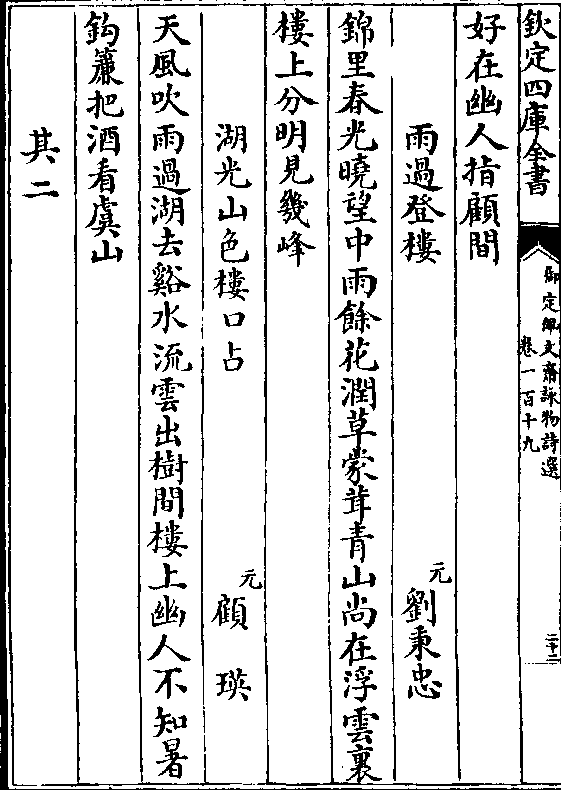 欽定四庫全書
御定佩文齋詠物詩選
卷一百十九
二十二
好在幽人指顧間
雨過登樓
元
劉秉忠
錦里春光曉望中雨餘花潤草蒙茸青山尚在浮雲裏
樓上分明見幾峰
湖光山色樓口占
元
顧 瑛
天風吹雨過湖去谿水流雲出樹間樓上幽人不知暑
鈎簾把酒看虞山
其二